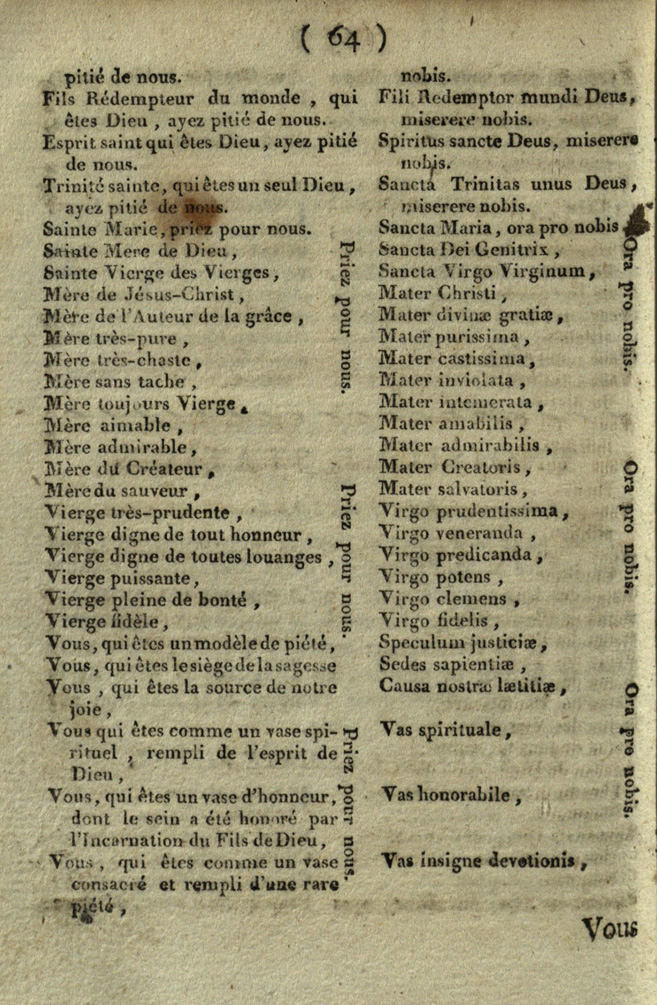 ( 64 )
pitié de nous.
Fils Rédempteur du monde , qui
êtes Dieu , ayez pitié de nous.
Esprit saint qui êtes Dieu, ayez pitié
de nous.
Trinité sainte, qui êtes un seul Dieu ,
ayez pitié de nous.
Sainte Marie, priez pour nous.
Sainte Mere de Dieu,
Sainte Vierge des Vierges,
Mère de Jésus-Christ ,
Mère de l'Auteur de la grâce ,
Mère très-pure ,
Mère très-chaste ,
Mère sans tache ,
Mère toujours Vierge,
Mère aimable ,
Mère admirable,
Mère du Créateur ,
Mère du sauveur ,
Vierge très-prudente ,
Vierge digne de tout honneur ,
Vierge digne de toutes louanges ,
Vierge puissante,
Vierge pleine de bonté ,
Vierge fidèle,
Vous, qui êtes un modèle de piété,
Vous, qui êtes le siège de la sagesse
Vous , qui êtes la source de notre
joie,
Vous qui êtes comme un vase spi-
rituel , rempli de l'esprit de
Dieu ,
Vous, qui êtes un vase d'honneur,
dont le sein a été honoré par
l'Incarnation du Fils de Dieu,
Vous , qui êtes comme un vase
consacré et rempli d'une rare
piété,
Priez pour nous.
Priez pour nous.
Priez pour nous.
nobis.
Fili Redemptor mundi Deus,
miserere nobis.
Spiritus sancte Deus, miserere
nobis.
Sancta Trinitas unus Deus,
miserere nobis.
Sancta Maria, ora pro nobis
Sancta Dei Genitrix ,
Sancta Virgo Virginum,
Mater Christi ,
Mater divinæ gratiæ,
Mater purissima ,
Mater castissima,
Mater inviolata ,
Mater intemerata ,
Mater amabilis ,
Mater admirabilis ,
Mater Creatoris,
Mater salvatoris,
Virgo prudentissima,
Virgo veneranda ,
Virgo predicanda,
Virgo potens ,
Virgo clemens ,
Virgo fidelis,
Speculum justiciæ,
Sedes sapientiæ ,
Causa nostræ lætitiæ,
Vas spirituale,
Vas honorabile ,
Vas insigne devotionis ,
Ora pro nobis.
Ora pro nobis.
Ora pro nobis.
Vous